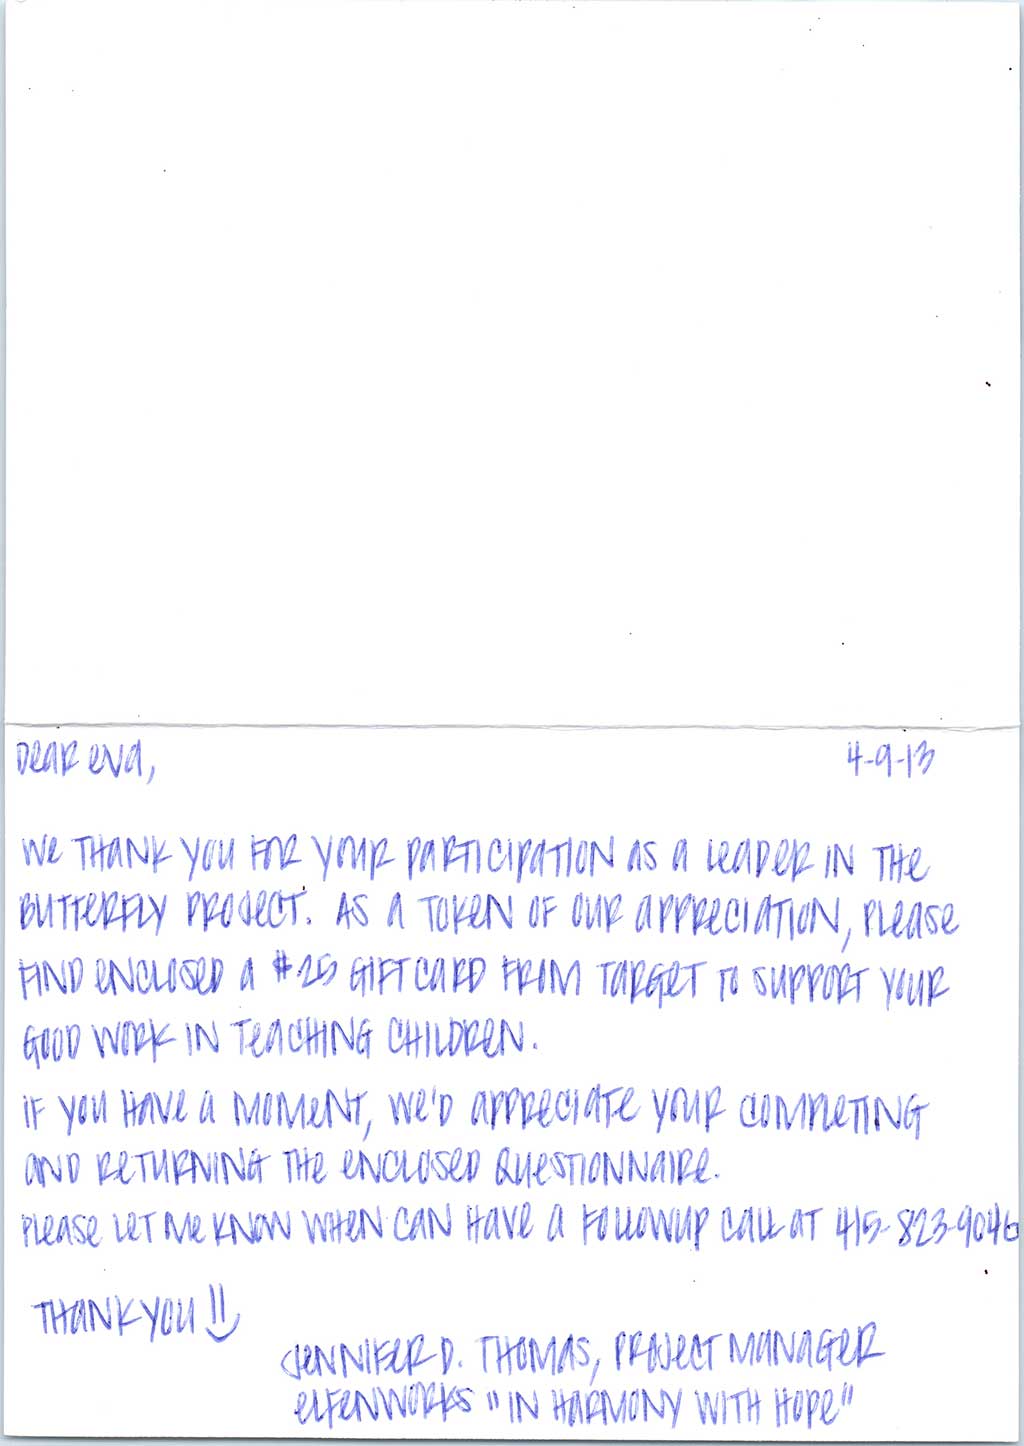 Dear Eva, 4-9-13
We thank you for your participation as a leader in the
Butterfly Project. As a token of our appreciation, please
find enclosed a $25 gift card from Target to support your
good work in teaching children.
If you have a moment, we'd appreciate your completing
and returning the enclosed questionnaire.
Please let me know when can have a followup call at 415-823-9046
Thank you !!
Jennifer D. Thomas, Project Manager
Elfenworks "In Harmony with Hope"